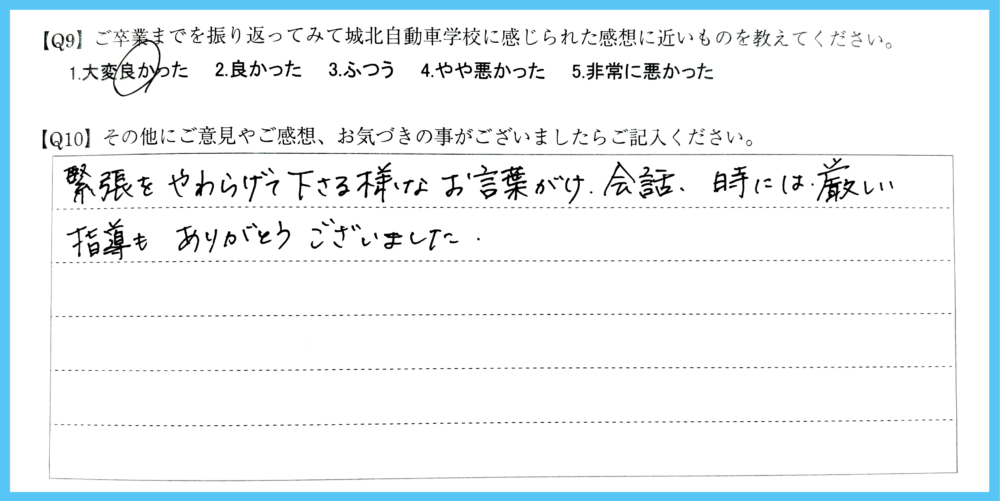 【Q9】ご卒業までを振り返ってみて城北自動車学校に感じられた感想に近いものを教えてください。
1.大変良かった 2.良かった 3.ふつう 4.やや悪かった 5.非常に悪かった
【Q10】その他にご意見やご感想、お気づきの事がございましたらご記入ください。
緊張をやわらげて下さる様なお言葉がけ、会話、時には厳しい
指導もありがとうございました。